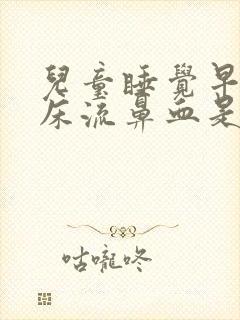 兒童睡覺早
床流鼻血是
咕嚨咚